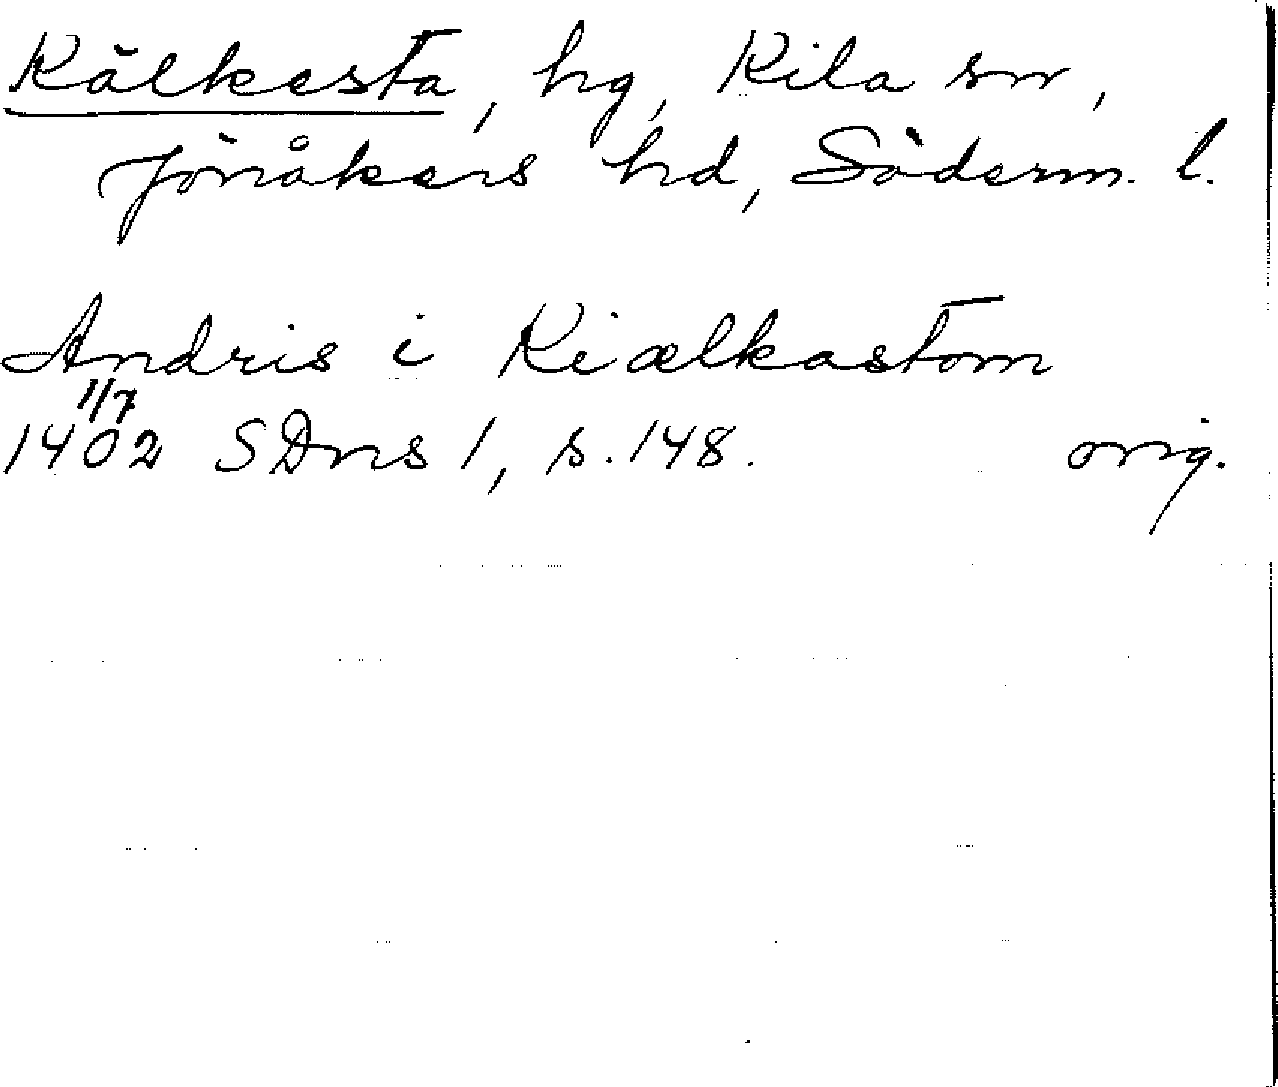 Kälkesta, hg, Kila sn,
Jönåkers hd, Söderm. l.
Andris i Kiælkastom
1/7
1402 SDns 1, s. 148. orig.